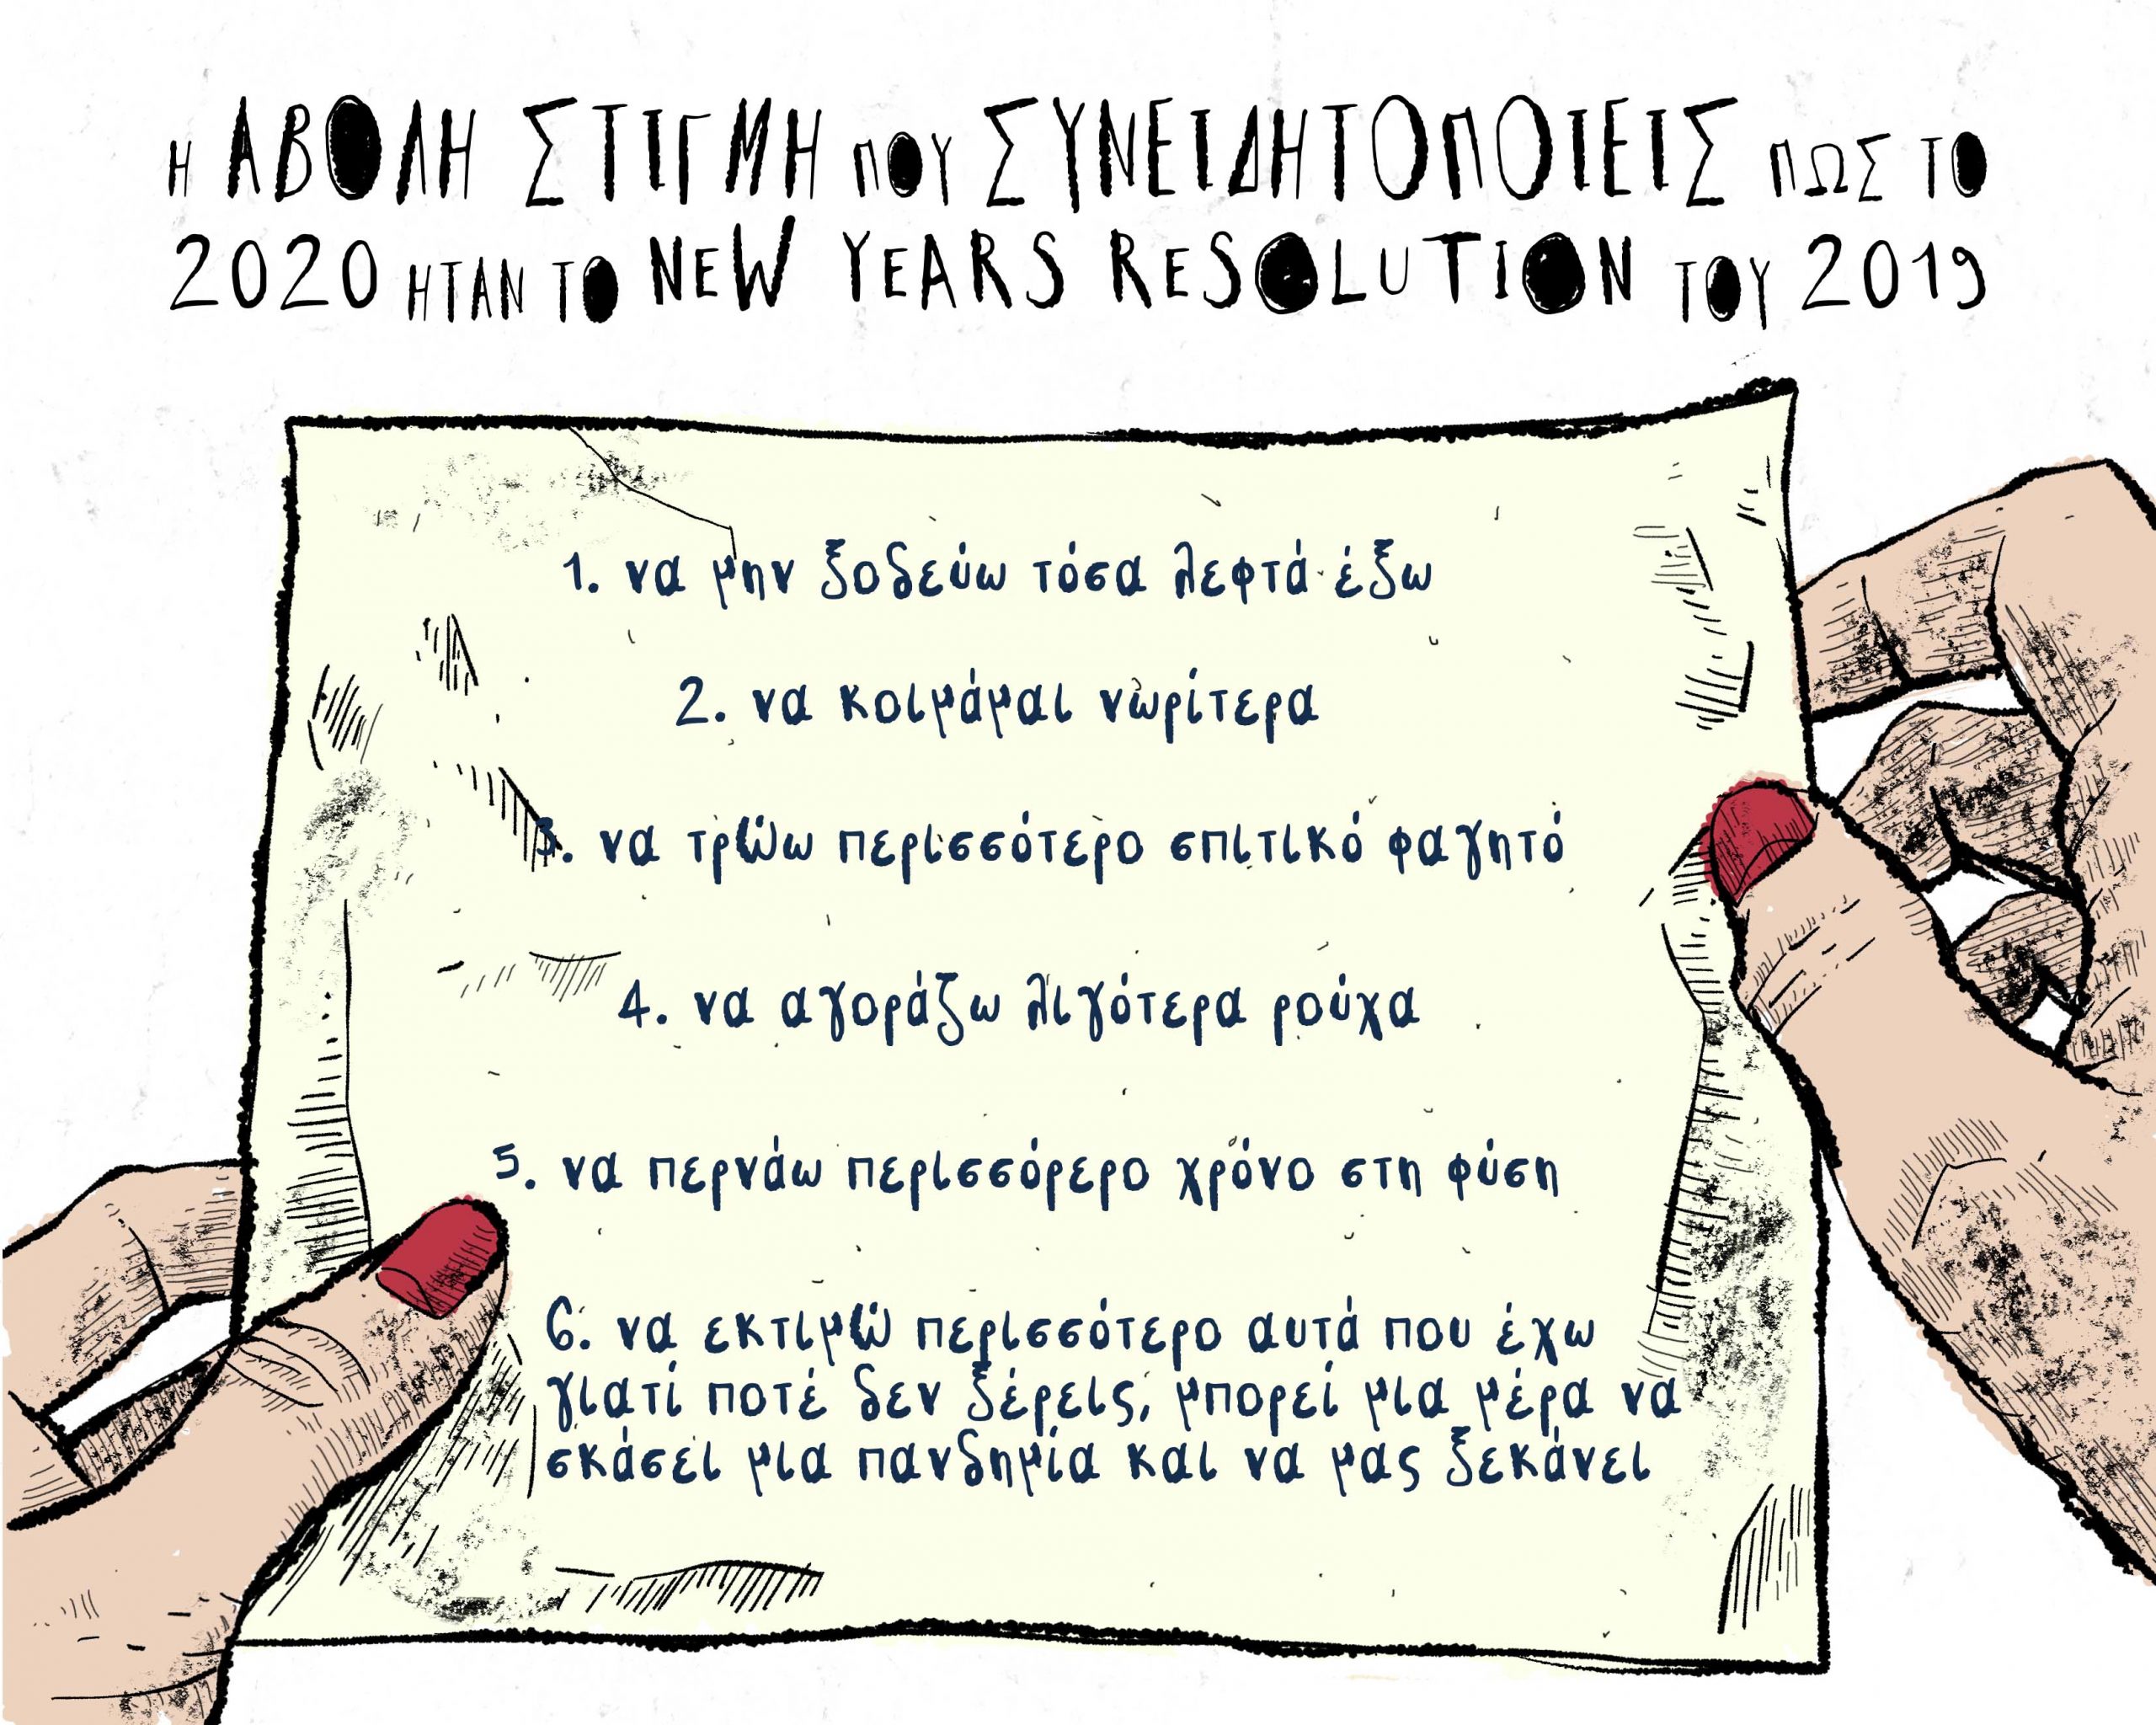 Η ΑΒΟΛΗ ΣΤΙΓΜΗ ΠΟΥ ΣΥΝΕΙΔΗΤΟΠΟΙΕΙΣ ΠΩΣ ΤΟ
2020 ΗΤΑΝ ΤΟ NEW YEARS RESOLUTION ΤΟΥ 2019
1. να μην ξοδεύω τόσα λεφτά έξω
2. να κοιμάμαι νωρίτερα
3. να τρώω περισσότερο σπιτικό φαγητό
4. να αγοράζω λιγότερα ρούχα
5. να περνάω περισσόρερο χρόνο στη φύση
6. να εκτιμώ περισσότερο αυτά που έχω
γιατί ποτέ δεν ξέρεις, μπορεί μια μέρα να
σκάσει μια πανδημία και να μας ξεκάνει